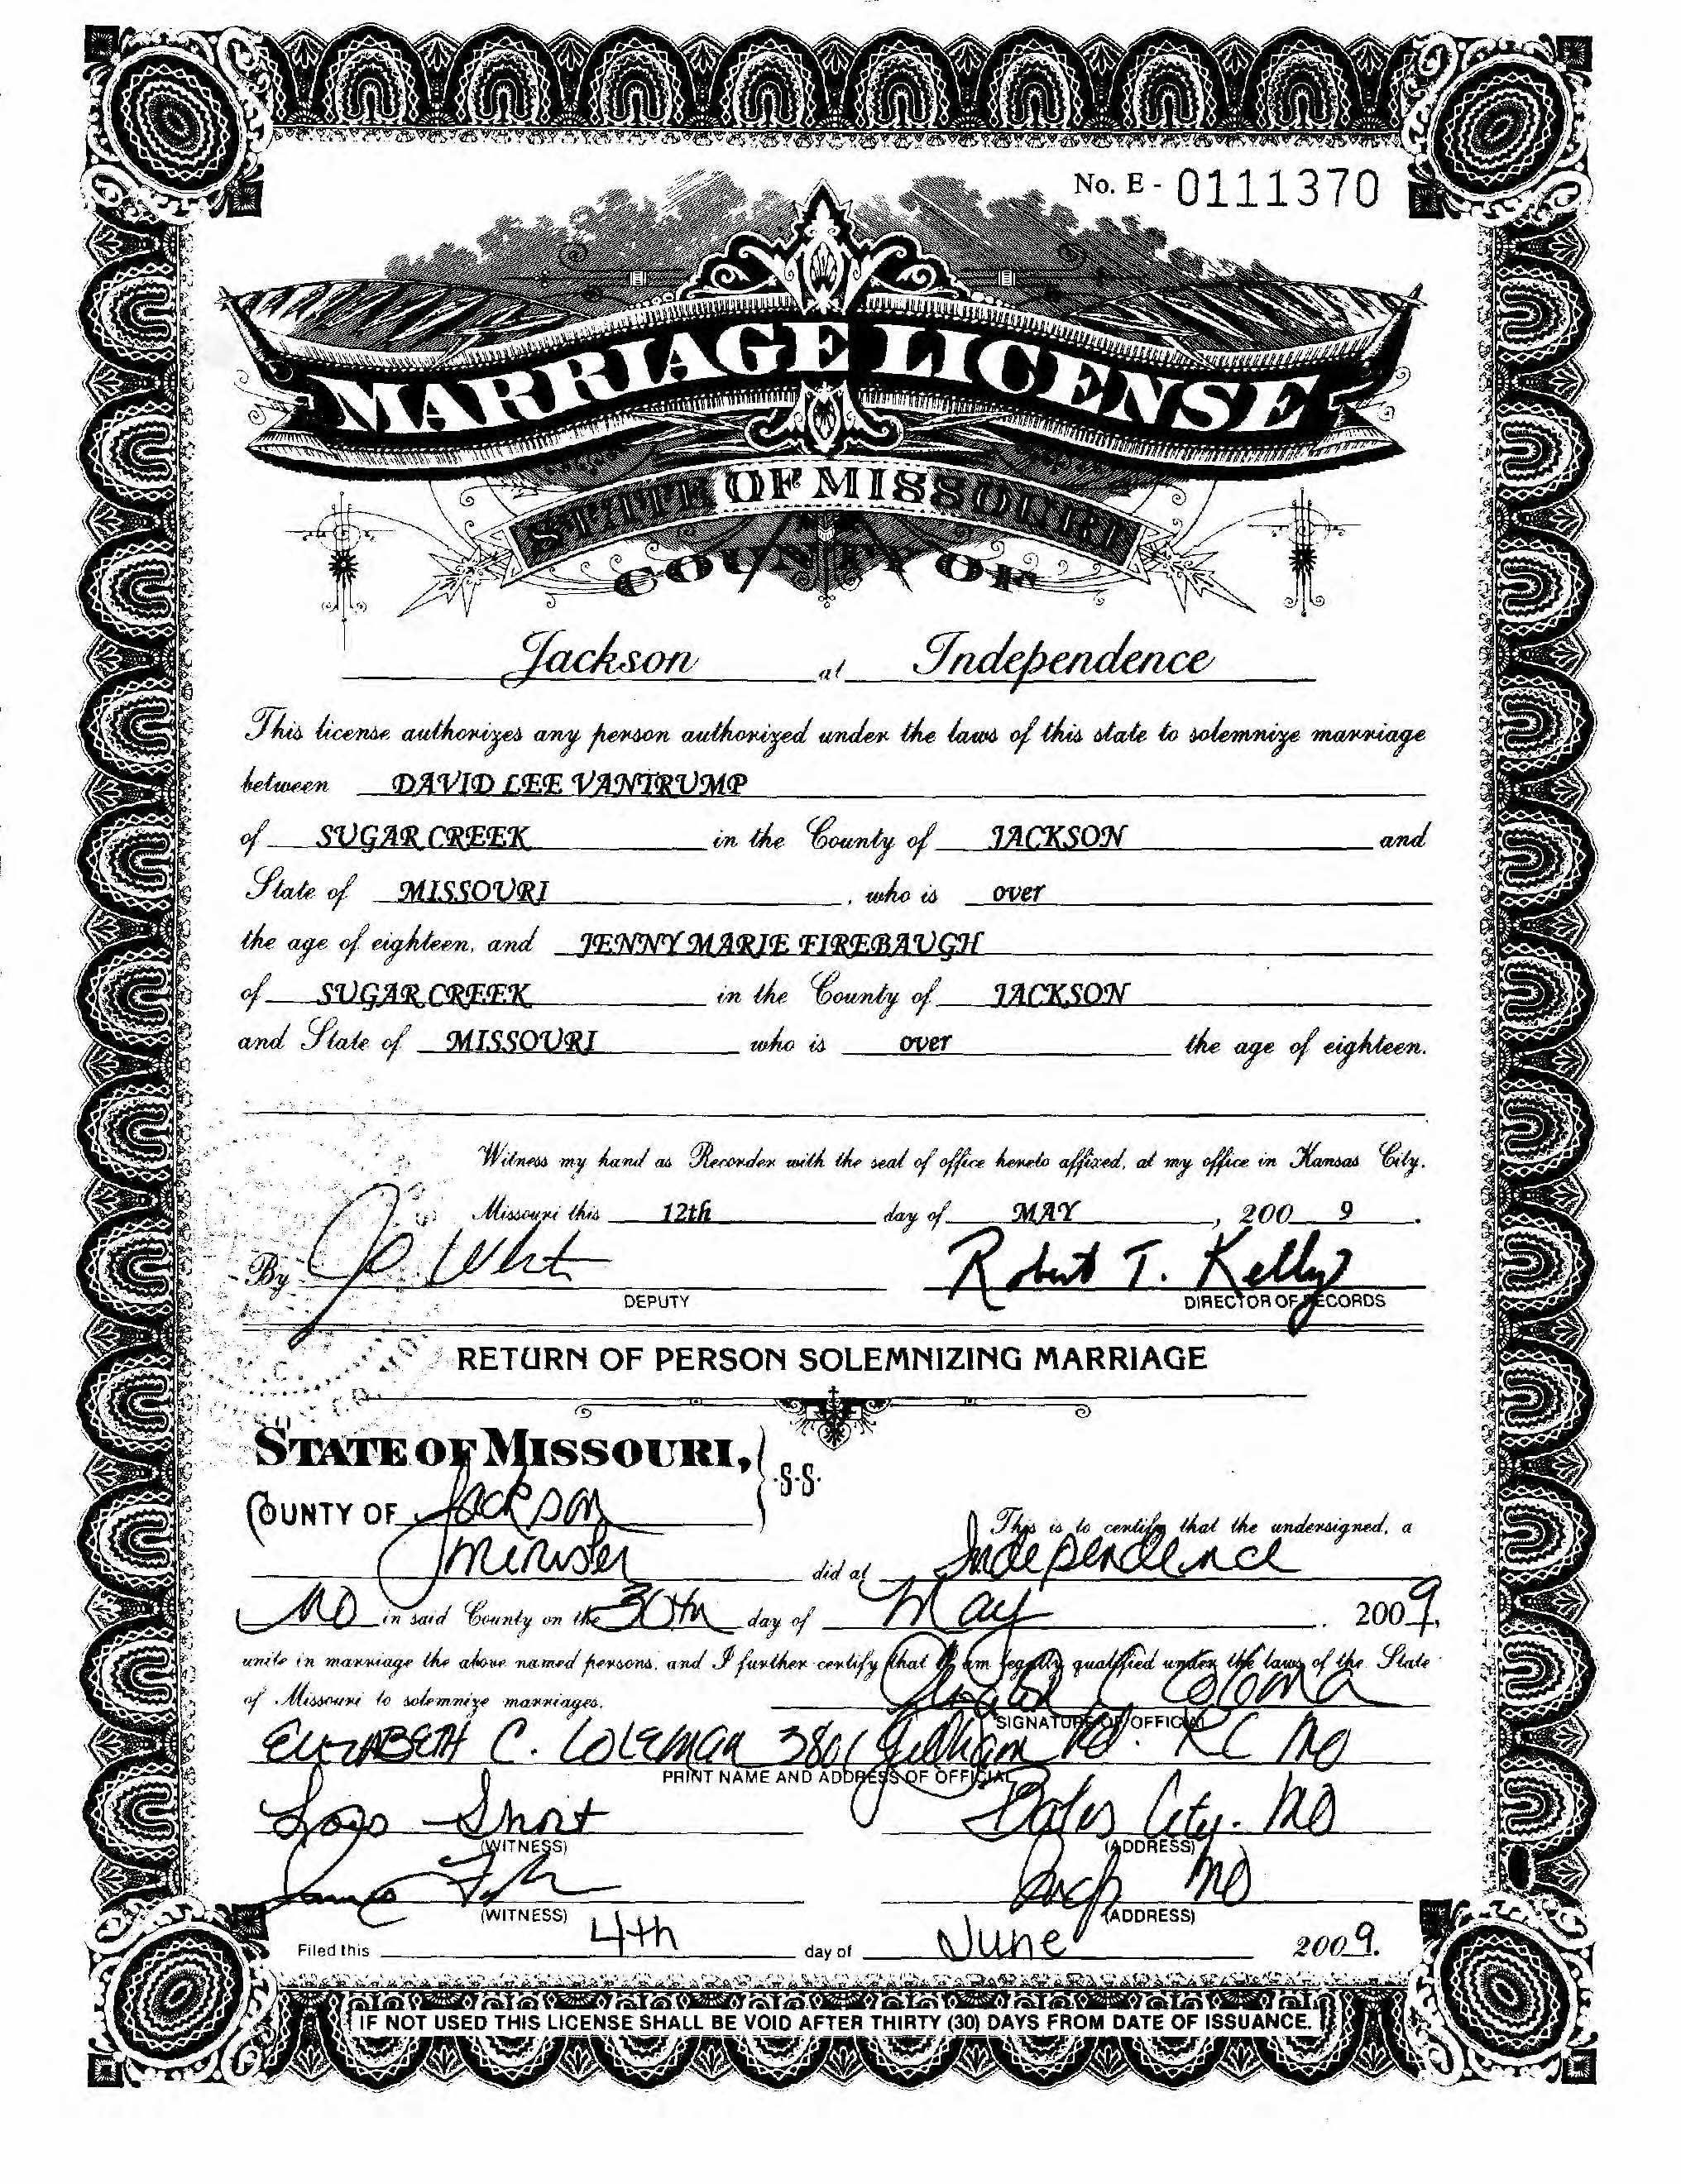 No. E - 0111370
MARRIAGE LICENSE
STATE OF MISSOURI
COUNTY OF
Jackson at Independence
This license authorizes any person authorized under the laws of this state to solemnize marriage
between DAVID LEE VANTRUMP
of SUGAR CREEK in the County of JACKSON and
State of MISSOURI , who is over
the age of eighteen, and JENNY MARIE FIREBAUGH
of SUGAR CREEK in the County of JACKSON
and State of MISSOURI who is over the age of eighteen.
Witness my hand as Recorder with the seal of office hereto affixed, at my office in Kansas City,
Missouri this 12th day of MAY , 200 9 .
By Jo West Robert T. Kelly
DEPUTY DIRECTOR OF RECORDS
RETURN OF PERSON SOLEMNIZING MARRIAGE
STATE OF MISSOURI, } S.S.
COUNTY OF Jackson
This is to certify that the undersigned, a
minister did at Independence
MO in said County on the 30th day of May , 2009,
unite in marriage the above named persons, and I further certify that I am legally qualified under the laws of the State
of Missouri to solemnize marriages.
SIGNATURE OF OFFICIAL
ELIZABETH C. COLEMAN 3801 Gillham Rd. KC MO
PRINT NAME AND ADDRESS OF OFFICIAL
Short Bates City. MO
(WITNESS) (ADDRESS)
James MO
(WITNESS) (ADDRESS)
Filed this 4th day of June 2009.
IF NOT USED THIS LICENSE SHALL BE VOID AFTER THIRTY (30) DAYS FROM DATE OF ISSUANCE.